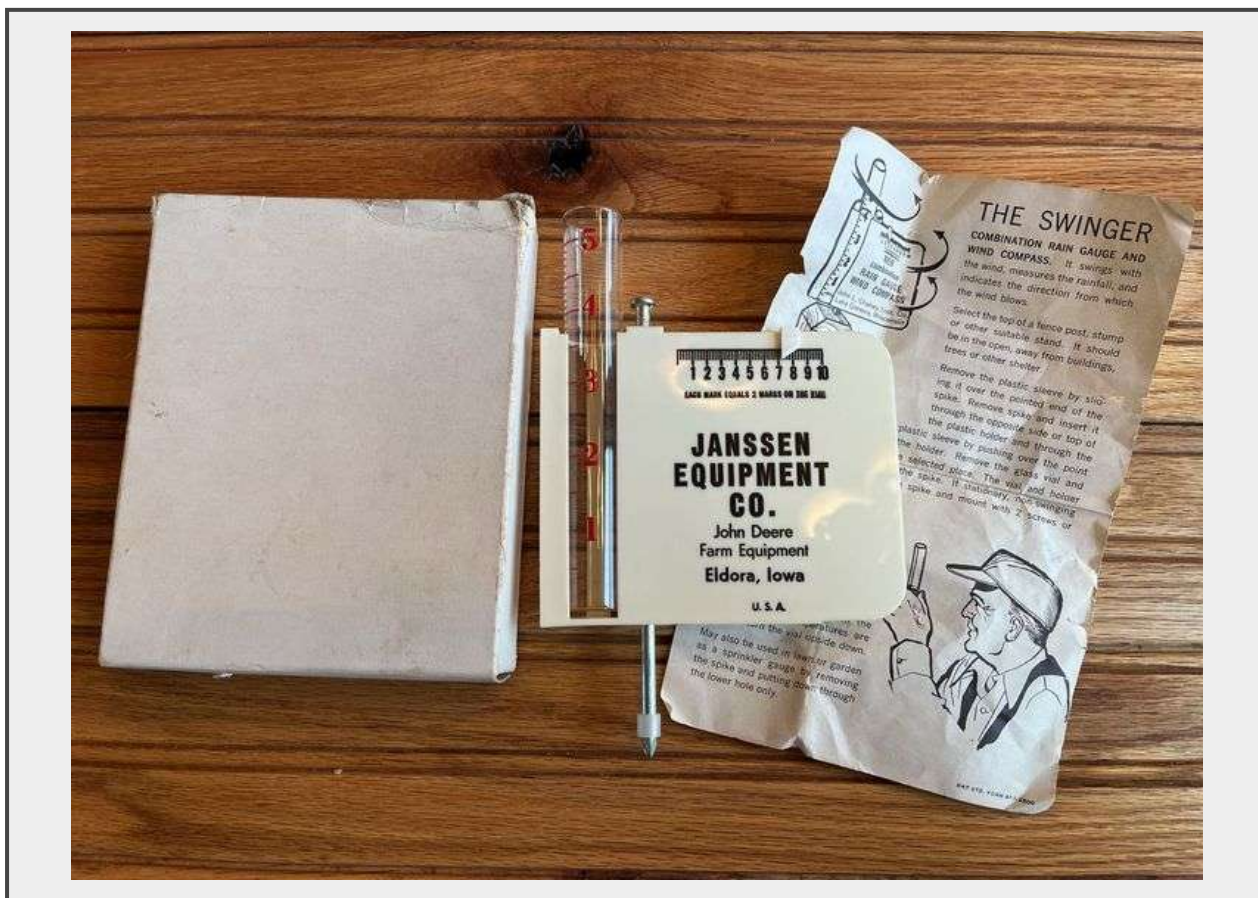 5
4
3
2
1
1 2 3 4 5 6 7 8 9 10
EACH MARK EQUALS 2 MARKS ON THE VIAL
JANSSEN
EQUIPMENT
CO.
John Deere
Farm Equipment
Eldora, Iowa
U. S. A.
RAIN GAUGE
WIND COMPASS
THE SWINGER
COMBINATION RAIN GAUGE AND
WIND COMPASS. It swings with
the wind, measures the rainfall, and
indicates the direction from which
the wind blows.
Select the top of a fence post, stump
or other suitable stand. It should
be in the open, away from buildings,
trees or other shelter
Remove the plastic sleeve by slid-
ing it over the pointed end of the
spike. Remove spike and insert it
through the opposite side or top of
the plastic holder and through the
plastic sleeve by pushing over the point
the holder. Remove the glass vial and
selected place. The vial and holder
the spike. If stationary, non-swinging
spike and mount with 2 screws or
the
are
the vial upside down.
May also be used in lawn or garden
as a sprinkler gauge by removing
the spike and putting down through
the lower hole only.